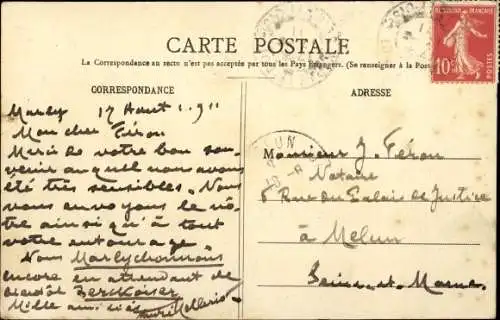 CARTE POSTALE
La Correspondance au recto n'est pas acceptée par tous les Pays Étrangers. (Se renseigner à la Poste
CORRESPONDANCE
ADRESSE
Marly 17 Août 1911
Mon cher Féron
Merci de votre bon sou-
venir auquel nous avons
été très sensibles. Nous
vous envoyons le nô-
tre ainsi qu'à tout
votre entourage
Nous Marlychonnons
encore en attendant de
bientôt
Mille amitiés
Monsieur J. Féron
Notaire
Rue du Palais de Justice
à Melun
Seine-et-Marne
RÉPUBLIQUE FRANÇAISE
10
POSTES